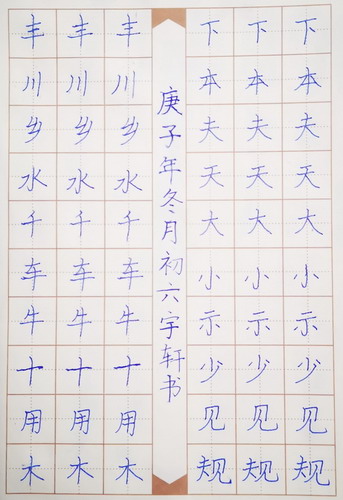 下本夫天大小示少见规
下本夫天大小示少见规
下本夫天大小示少见规
庚子年冬月初六宇轩书
丰川乡水千车牛十用木
丰川乡水千车牛十用木
丰川乡水千车牛十用木